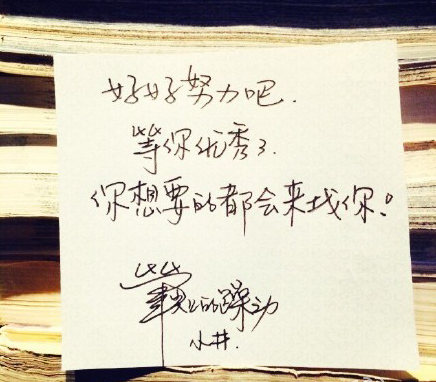 好好努力吧.
等你优秀了.
你想要的都会来找你!
的躁动
小井.